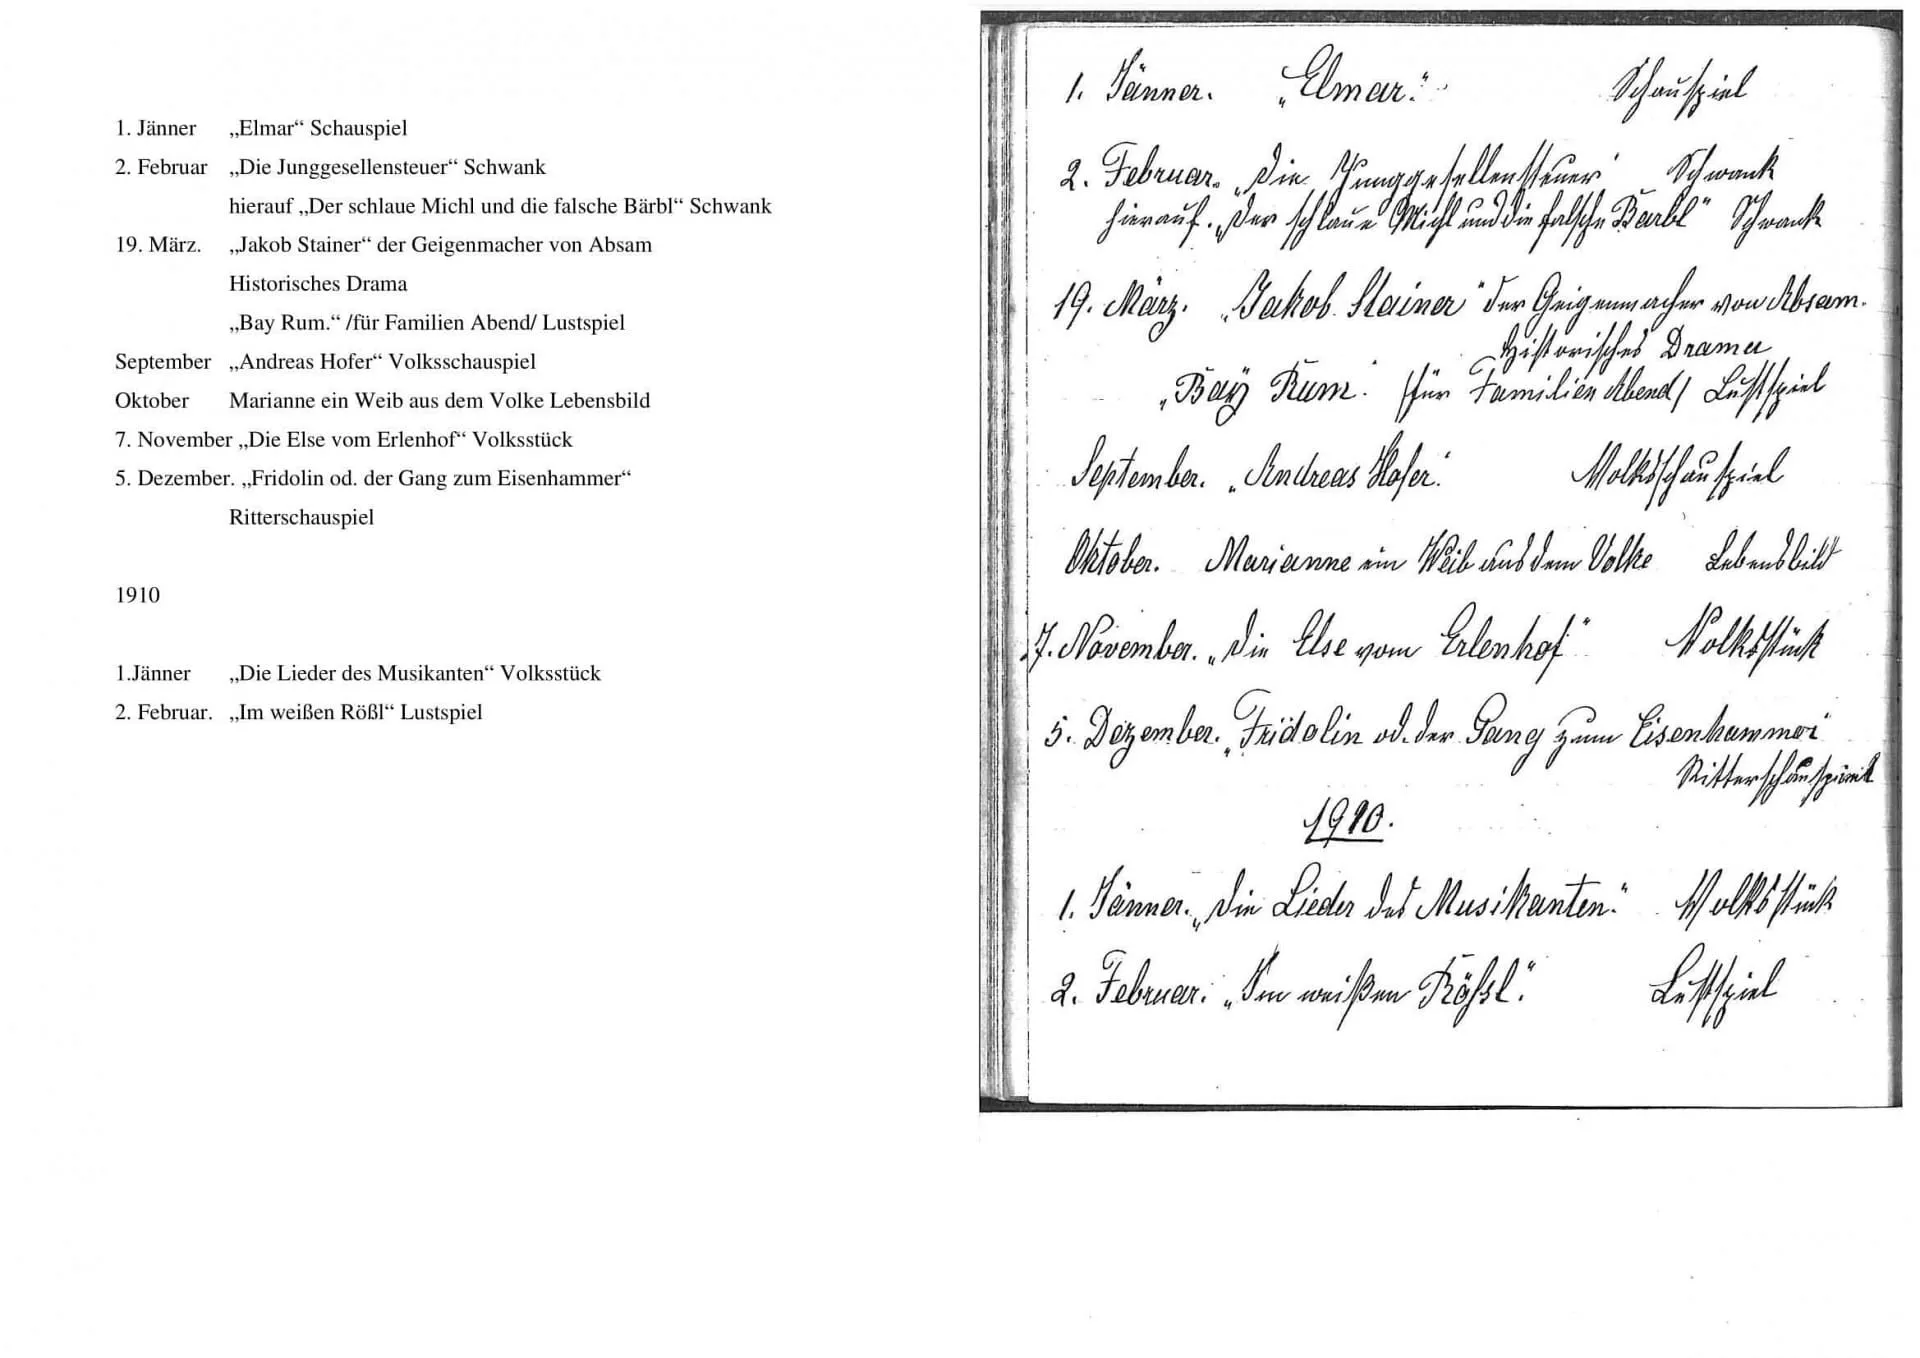 1. Jänner „Elmar“ Schauspiel
2. Februar „Die Junggesellensteuer“ Schwank
hierauf „Der schlaue Michl und die falsche Bärbl“ Schwank
19. März. „Jakob Stainer“ der Geigenmacher von Absam
Historisches Drama
„Bay Rum.“ /für Familien Abend/ Lustspiel
September „Andreas Hofer“ Volksschauspiel
Oktober Marianne ein Weib aus dem Volke Lebensbild
7. November „Die Else vom Erlenhof“ Volksstück
5. Dezember. „Fridolin od. der Gang zum Eisenhammer“
Ritterschauspiel
1910
1.Jänner „Die Lieder des Musikanten“ Volksstück
2. Februar. „Im weißen Rößl“ Lustspiel
1. Jänner. „Elmar.“ Schauspiel
2. Februar. „Die Junggesellensteuer“ Schwank
hierauf. „Der schlaue Michl und die falsche Barbl“ Schwank
19. März. „Jakob Stainer“ der Geigenmacher von Absam.
Historisches Drama
„Bay Rum.“ /für Familien Abend/ Lustspiel
September. „Andreas Hofer.“ Volksschauspiel
Oktober. Marianne ein Weib aus dem Volke Lebensbild
7. November. „Die Else vom Erlenhof“ Volksstück
5. Dezember. „Fridolin od. der Gang zum Eisenhammer“
Ritterschauspiel
1910.
1. Jänner. „Die Lieder des Musikanten.“ Volksstück
2. Februar. „Im weißen Rößl.“ Lustspiel